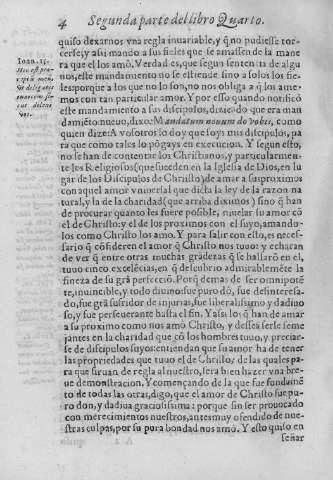 4 Segunda parte del libro Quarto.
quiso dexarnos vna regla inuariable, y q̃ no pudiesse tor-
cerse, y assi mandò a sus fieles que se amassen de la mane
ra que el los amò. Verdad es, que segun sentencia de algu
nos, este mandamiento no se estiende sino a solos los fie-
les: porque a los que no lo son, no nos obliga a q̃ los ame-
mos con tan particular amor. Y por esso quando notificò
este mandamiento a sus discipulos, diziẽdo que era man
damiẽto nueuo, dixo: Mandatum nouum do vobis, como
quien dize: A vosotros lo doy que soys mis discipulos, pa
ra que como tales lo põgays en execucion. Y segun esto,
no se han de contentar los Christianos, y particularmen-
te los Religiosos (que suceden en la Iglesia de Dios, en lu
gar de los Discipulos de Christo) de amar a sus proximos
con aquel amor vniuersal que dicta la ley de la razon na
tural, y la de la charidad (que arriba diximos) sino q̃ han
de procurar quanto les fuere posible, niuelar su amor cõ
el de Christo: y el de los proximos con el suyo, amando-
los como Christo los amo. Y para salir con esto, es neces-
sario q̃ cõsideren el amor q̃ Christo nos tuuo: y echaran
de ver q̃ entre otras muchas grãdezas q̃ se hallarõ en el,
tuuo cinco excelẽcias, en q̃ descubrio admirablemẽte la
fineza de su grã perfecciõ. Porq̃ demas de ser omnipotẽ
te, inuincible, y todo diuino: fue puro dõ, fue desinteresa-
do, fue grã sufridor de injurias, fue liberalissimo y dadiuo
so, y fue perseuerante hasta el fin. Y assi los q̃ han de amar
a su proximo como nos amò Christo, y dessean serle seme
jantes en la charidad que cõ los hombres tuuo, y preciar-
se de discipulos suyos: entiendan que su amor ha de tener
las propriedades que tuuo el de Christo; de las quales pa-
ra que siruan de regla al nuestro, sera biẽ hazer vna bre-
ue demonstracion. Y començando de la que fue fundamẽ
to de todas las otras, digo, que el amor de Christo fue pu-
ro don, y dadiua graciosissima: porque sin ser prouocado
con merecimientos nuestros, antes muy ofendido de nues-
tras culpas, por su pura bondad nos amò. Y esto quiso en
señar
Ioan. 13.